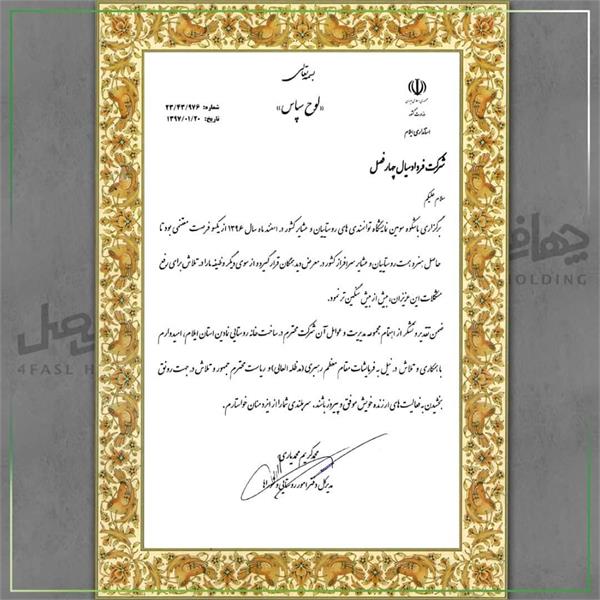 بسمه تعالی
«لوح سپاس»
جمهوری اسلامی ایران
وزارت کشور
استانداری ایلام
شماره: ۲۳/۴۳/۹۷۶
تاریخ: ۱۳۹۷/۰۱/۲۰
شرکت فرداد سیال چهار فصل
سلام علیکم
برگزاری باشکوه سومین نمایشگاه توانمندی های روستاییان و عشایر کشور در اسفند ماه سال ۱۳۹۶ از یکسو فرصت مغتنمی بود تا
حاصل هنر و همت روستاییان و عشایر سرافراز کشور در معرض دید همگان قرار گیرد و از سوی دیگر وظیفه ما را در تلاش برای رفع
مشکلات این عزیزان، بیش از پیش سنگین تر نمود.
ضمن تقدیر و تشکر از اهتمام مجموعه مدیریت و عوامل آن شرکت محترم در ساخت خانه روستایی نمادین استان ایلام، امیدوارم
با همکاری و تلاش در نیل به فرمایشات مقام معظم رهبری (مدظله العالی) و ریاست محترم جمهور و تلاش در جهت رونق
بخشیدن به فعالیت های ارزنده خویش موفق و پیروز باشند. سربلندی شما را از ایزد منان خواستارم.
محمدکریم محمدیاری
مدیرکل دفتر امور روستایی و شوراها
4FASL H
HOLDING